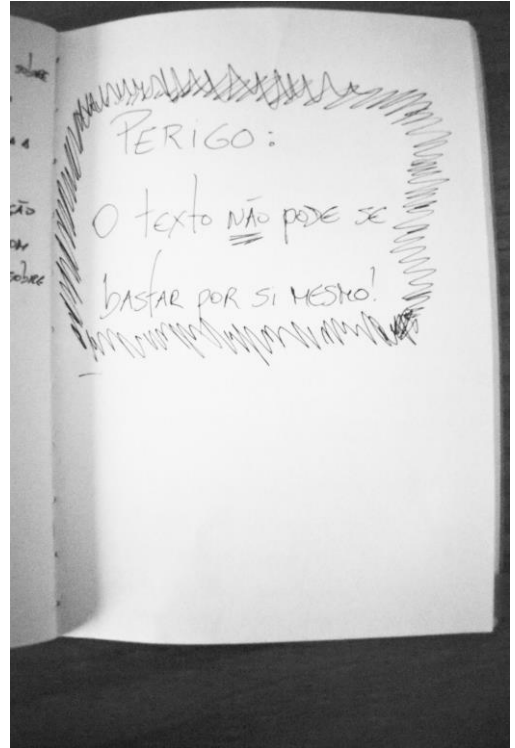 sobre
a
ção
om
sobre
PERIGO:
O texto NÃO PODE SE
BASTAR POR SI MESMO!